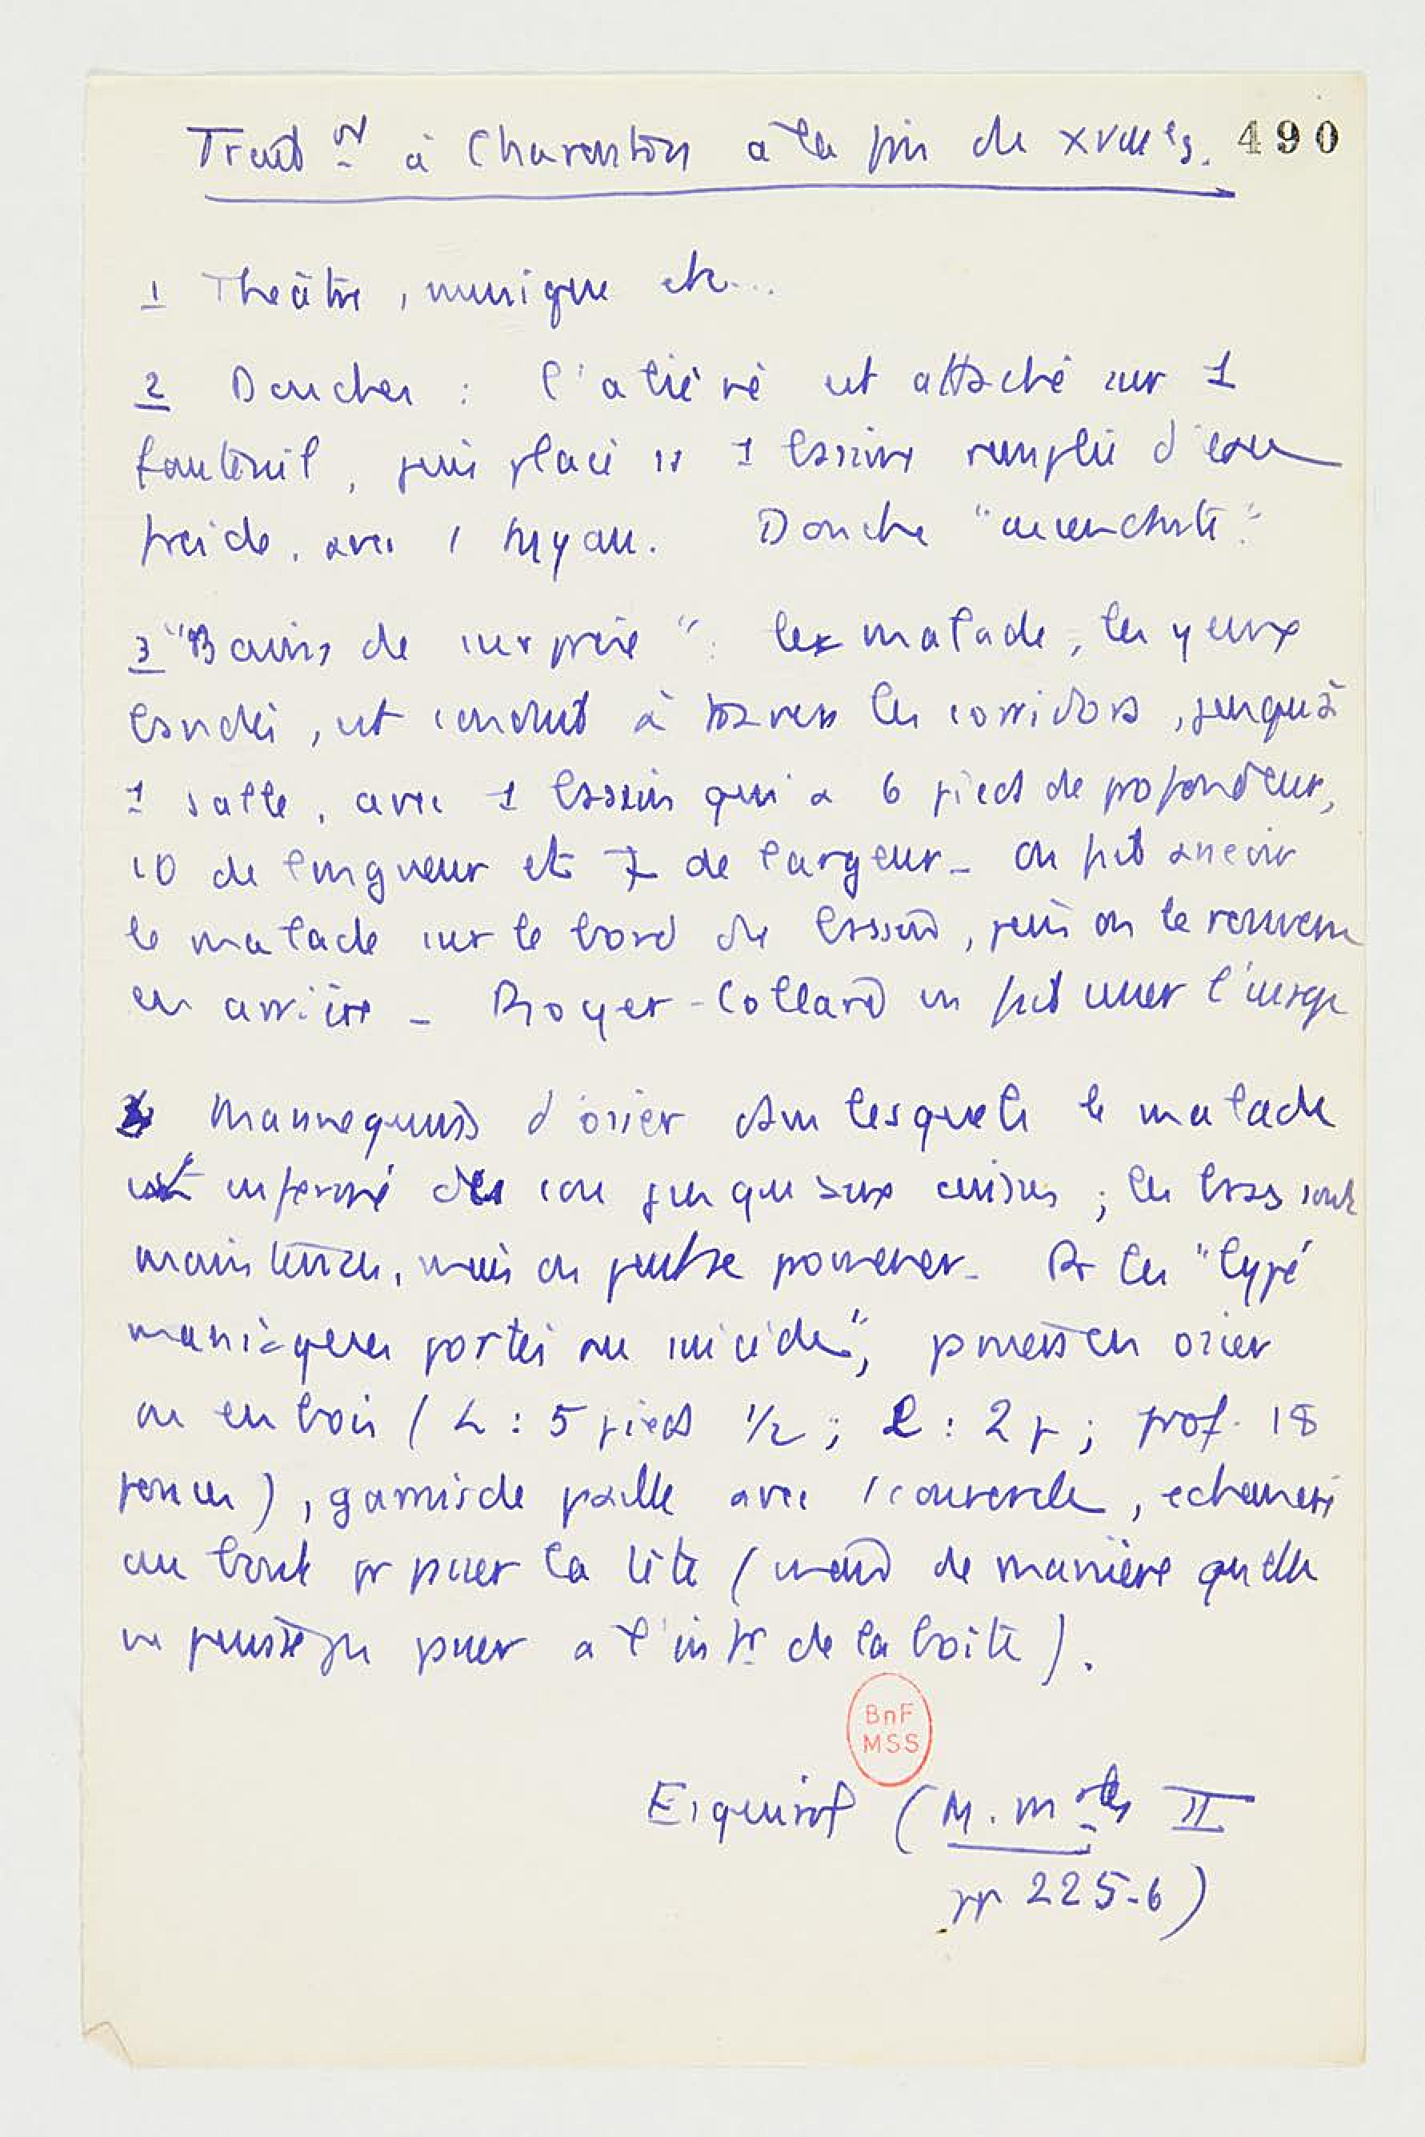 Trait nt à Charenton à la fin du XVIIIe s. 490
1 Théâtre, musique etc...
2 Douches : l'aliéné est attaché sur 1
fauteuil, puis placé ds 1 baignoire remplie d'eau
froide, avec 1 tuyau. Douche "ascendante".
3 "Bains de surprise" : le malade, les yeux
bandés, est conduit à travers les corridors, jusqu'à
1 salle, avec 1 bassin qui a 6 pieds de profondeur,
10 de longueur et 7 de largeur - on fait asseoir
le malade sur le bord du bassin, puis on le renverse
en arrière - Royer-Collard en fait cesser l'usage
4 Mannequins d'osier dans lesquels le malade
est enfermé du cou jusqu'aux cuisses ; les bras sont
maintenus, mais on peut se promener - Pr les "lypé
maniaques portés au suicide",  en osier
ou en bois (L : 5 pieds 1/2 ; l : 2 p ; prof. 18
pouces), garnis de paille avec 1 couvercle, échancré
au bout pr passer la tête (mais de manière qu'elle
ne puisse pas passer à l'intr de la boîte).
BnF
MSS
Esquirol (M. mtales II
pp 225-6)